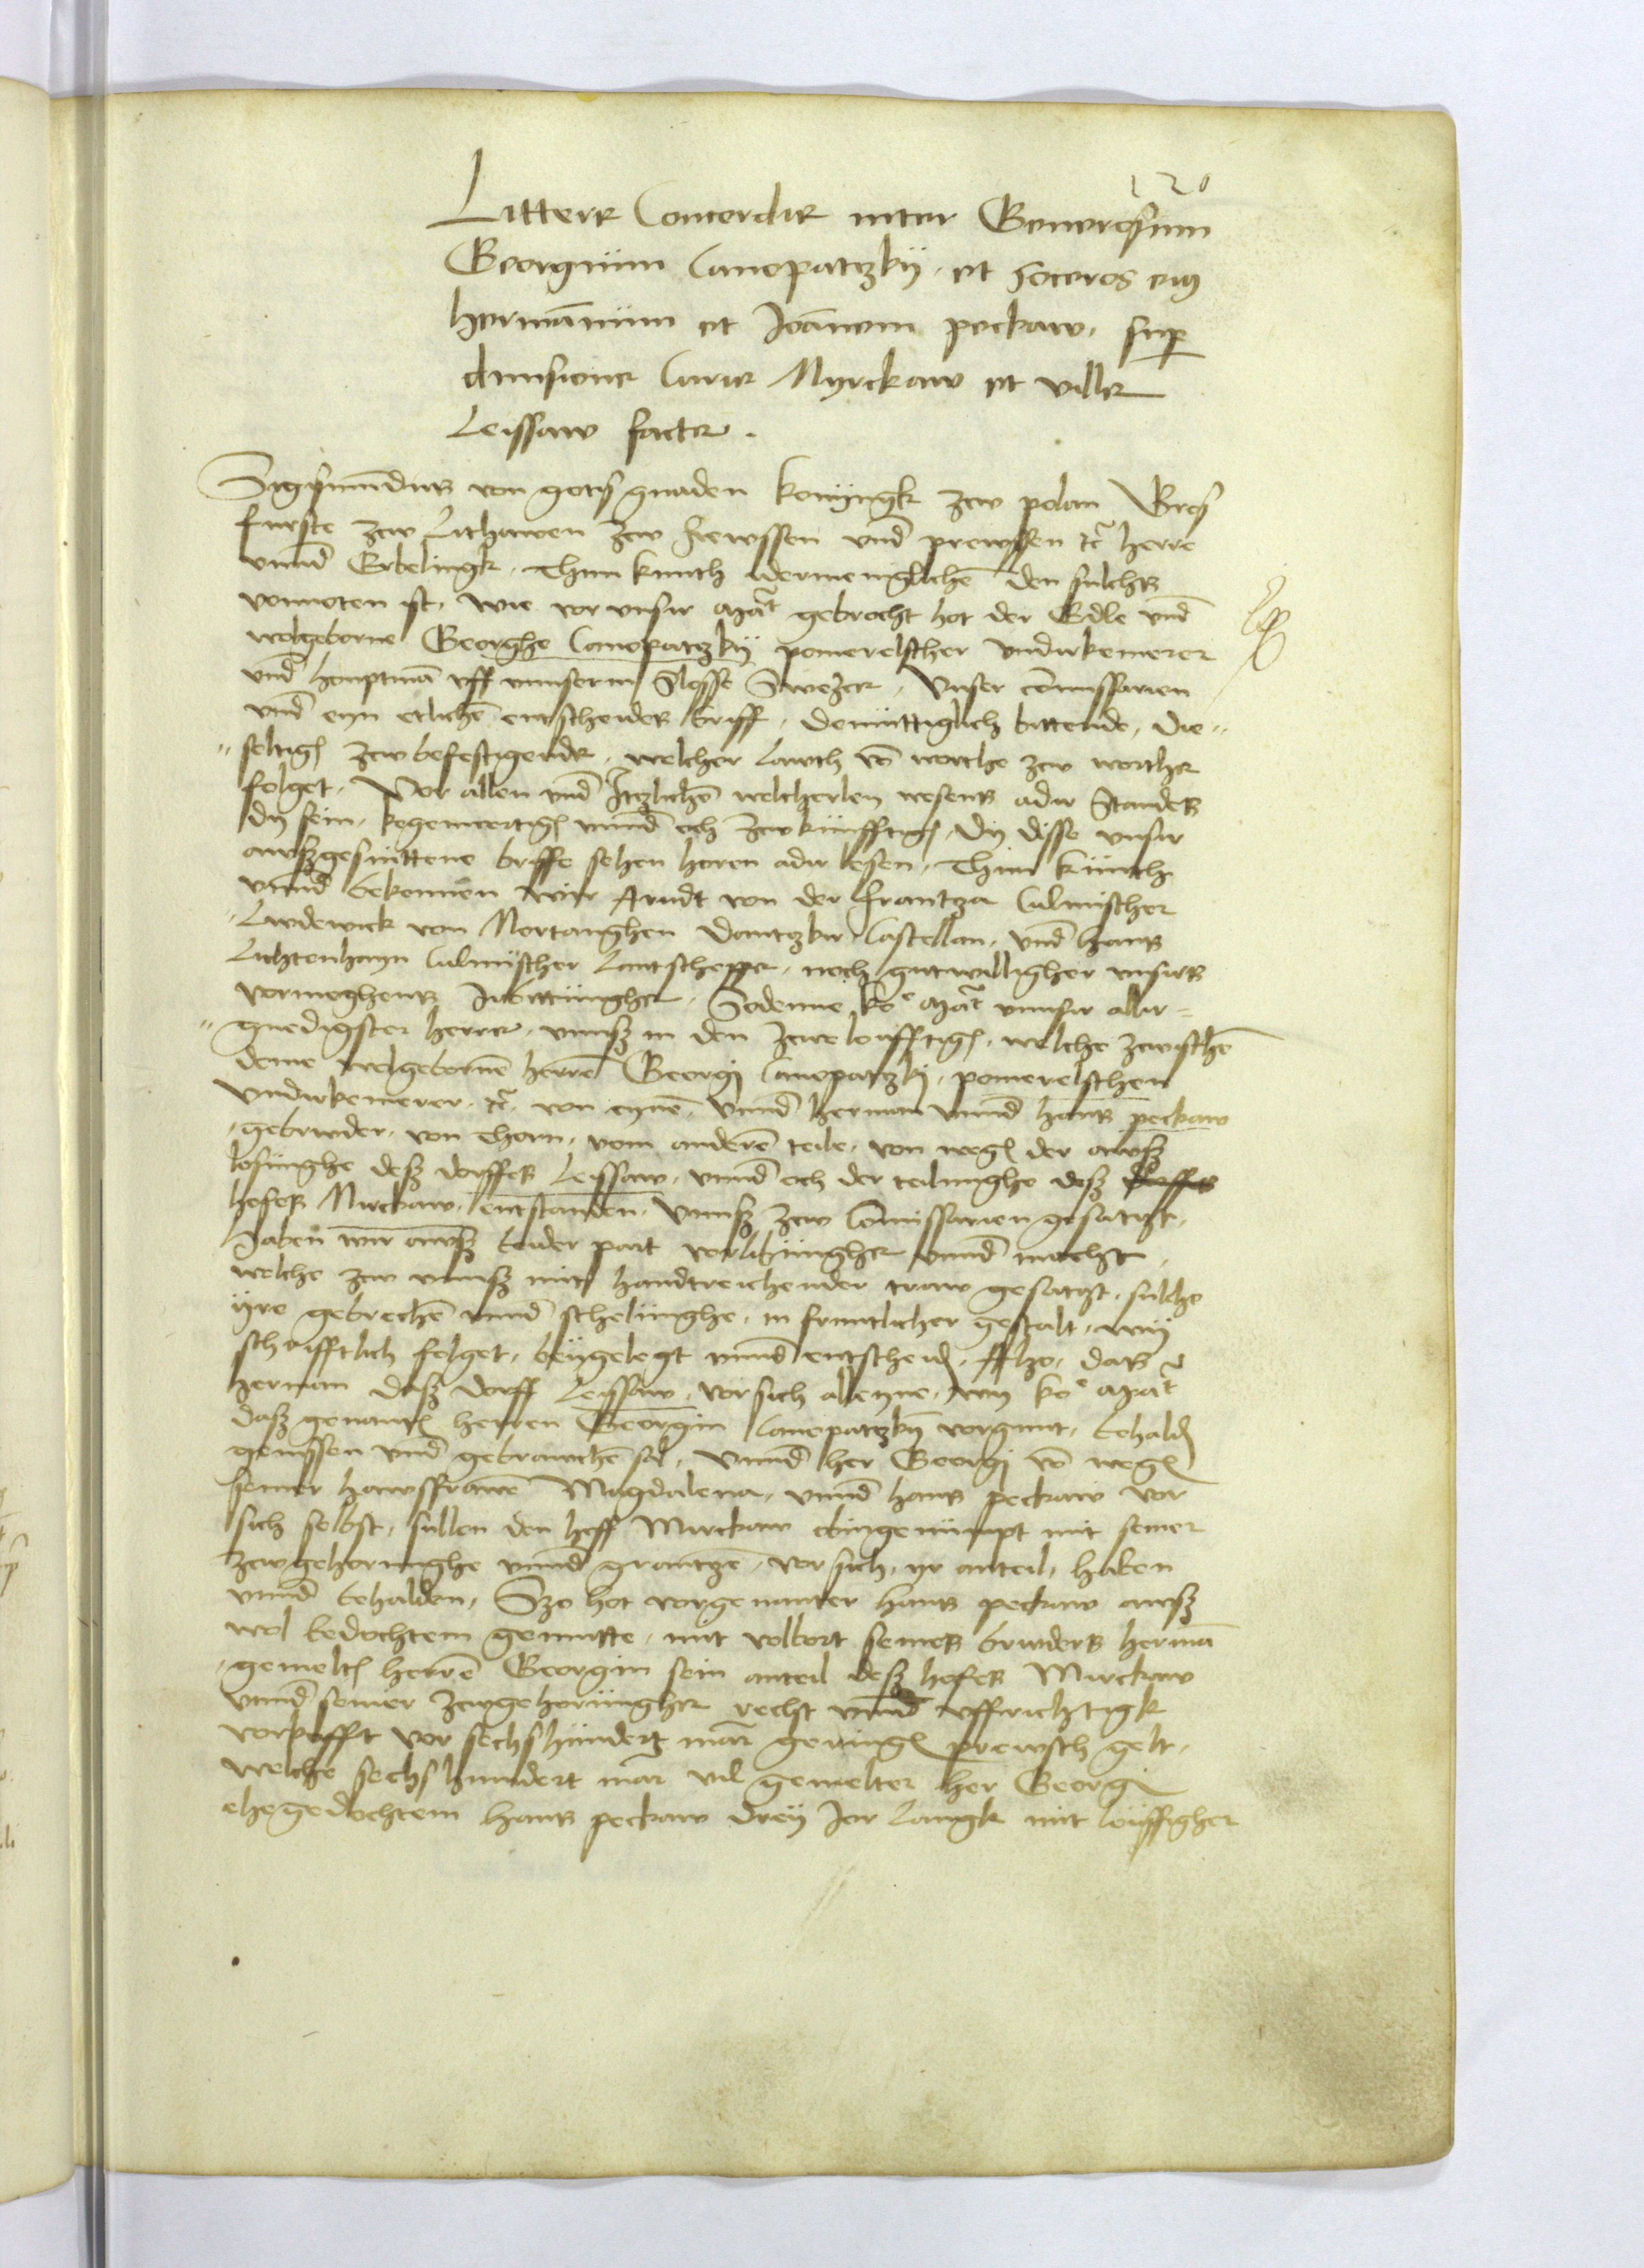 120
Littere Concordie inter Generosum
Georgium Conopatzky et soceros eius
hermānum et Joānem peckaw, sup
divisione Curie Myrckaw et ville
Leissaw facte.
Sigismūdus von gots gnaden konyngk zcw polan Gros
furste zcw Lithawen zcw Rewssen vnd prewssen etc herre
vnnd Erbelingk, Thun kunth idermeniglichē den sulchs
vonnoten ist, wie vor vnsir Mat gebrocht hot der Edle vnd
wolgeborne Georghe Conopatzky pomerelscher vndirkemerer
vnd houptmā vff vnnserm Slosse Swecze, Vnser cōmissarien
vnd eyn etlichē entscheides briff, demuttiglich bittende, die
selbig zcw befestigende, welcher lawth vō worthe zcw worthe
folget, Vor allen vnd Itzlichē welcherley wesens adir Standes
dy sein, kegenwertig vnnd och zcwkunfftig, Dy disse vnsir
awszgesnittene briffe sehen horen adir lesen, Thun kunth
vnnd bekennen wir Arndt von der Frantza Culmischer
Ludewick von Mortanghen Dantzker Castellan, vnd Hans
Lichtenhayn Culmischer Lantschepper, noch gutwilligher vnsirs
vormoghens irbittunghe, Sodenne ko Mat vnnsir allir
gnedigster herre, vnnsz in den zcweloufftig, welche zcwischē
deme wolgebornē herrē Georgj Conopatzkj, pomerelschen
vndirkemerer etc von eynē, vnnd herman vnnd hans peckaw
gebruder von Thorn, vom anderē teile, von weg der awsz
losunghe desz dorffes Leissaw, vnnd och der teilunghe desz
hofes Mirckaw entstanden, vnnsz zcw Cōmissarien gesatzt,
Haben wir awsz beider part vorlibunghe vnnd macht,
welche zcw vnnsz mit handtreichender traw gesatzt, sulche
yre gebrechē vnnd schelunghe, in fruntlicher gestalt, wy
schrifftlich folget, beygelegt vnnd entscheid, Alzo, das
herman dasz dorff Leissaw, vor sich alleyne, wy ko Mat
dasz genant herren Georgin Conopatzky vorgunt, behald
genissen vnd gebrawchē sal, Vnnd her Georgj vō weg
seiner hawsfrawē Magdalena, vnnd hans peckaw vor
sich selbst, sullen den hoff Mirckaw obingenumpt mit seiner
zcwgehorunghe vnnd grantzē, vor sich, yr anteil, haben
vnnd behalden, Szo hot vorgenanter hans peckaw awsz
wol bedochtem gemutte, mit volbort seines bruders hermā
gemelt herrē Georgin sein anteil desz hofes Mirckaw
vnnd seiner zcwgehorunghe recht vnnd vffrichtigk
vorkofft vor sechshundert mar gering prewsch gelt,
welche sechshundert mar vil gemelter her Georgj
ehegedochtem hans peckaw drey Jor langk mit louffigher